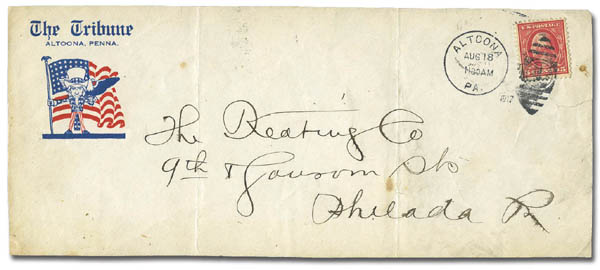 The Tribune
ALTOONA, PENNA.
ALTOONA
AUG 18
1130AM
PA.
1917
U.S. POSTAGE
5
The Keating Co
9th & Sansom Sts
Philada Pa